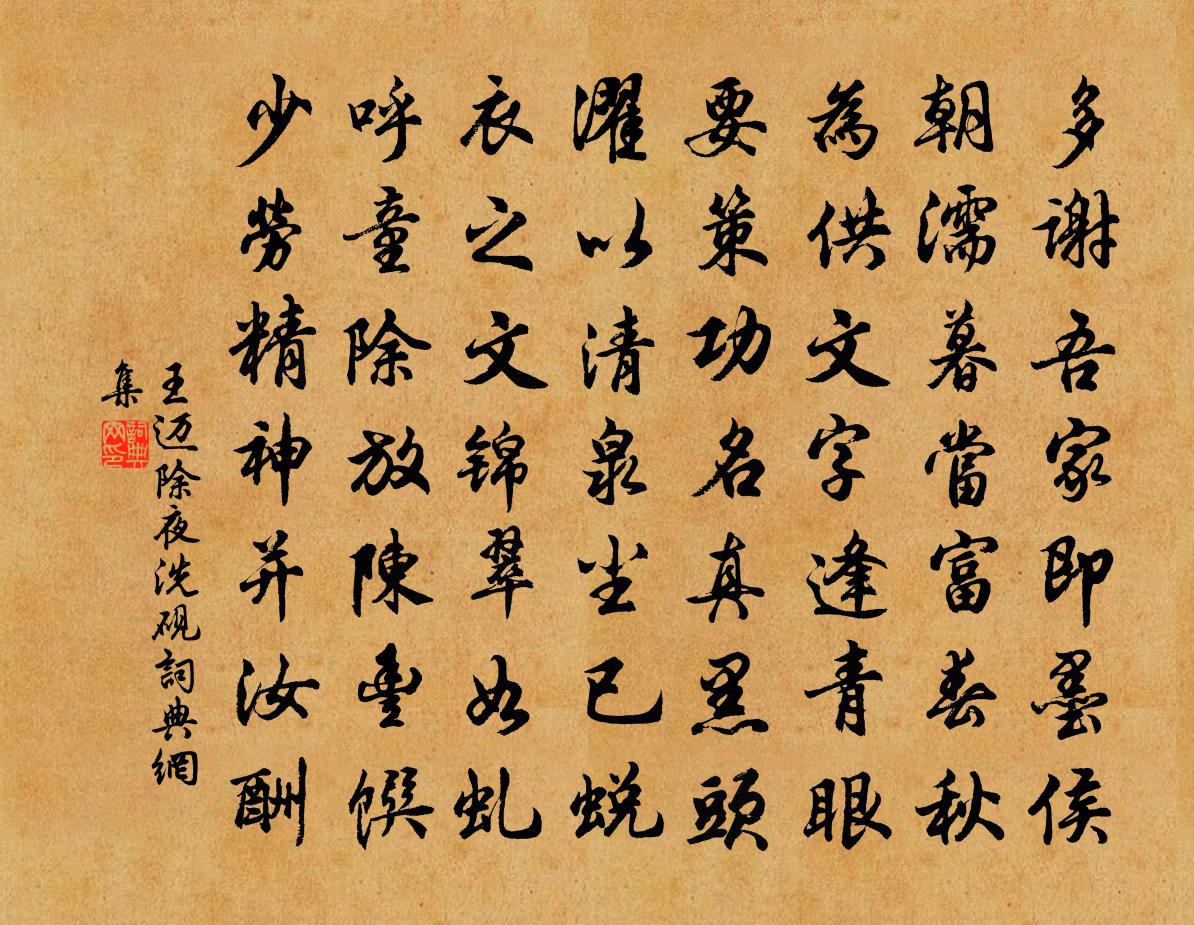 多謝吾家即墨侯
朝濡暮當富春秋
為供文字逢青眼
要策功名真黑頭
濯以清泉坐已蜕
衣之文锦翠如虬
呼童除放陳豐馔
少勞精神并汝酬
王迈除夜洗硯詞典網
集
詞典
网印